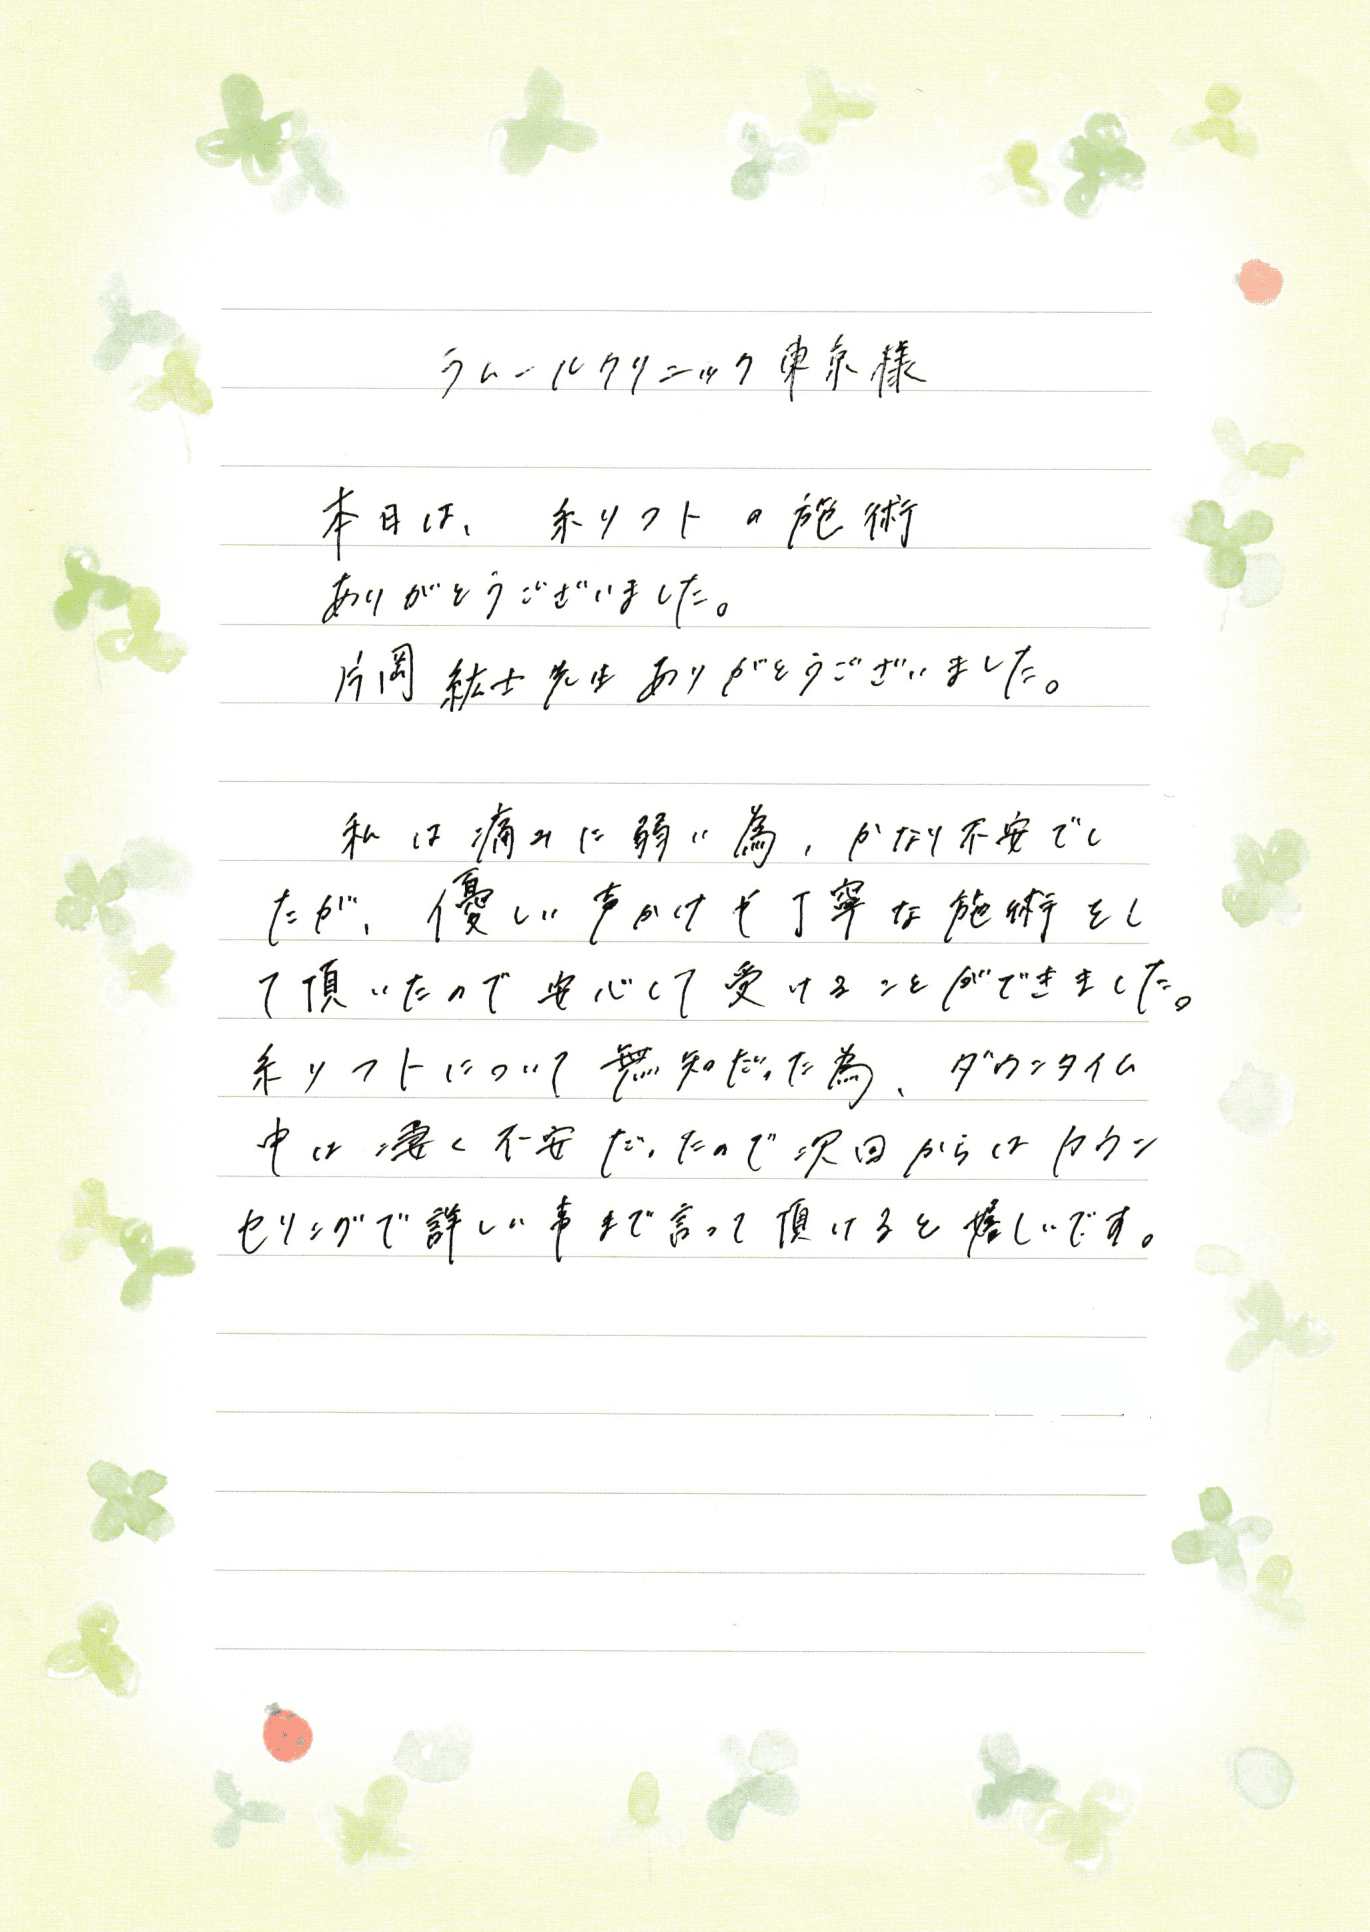 ラムールクリニック東京様
本日は、糸リフトの施術
ありがとうございました。
片岡 紘士先生ありがとうございました。
私は痛みに弱い為、かなり不安でし
たが、優しい声かけや丁寧な施術をし
て頂いたので安心して受けることができました。
糸リフトについて無知だった為、ダウンタイム
中は凄く不安だったので次回からはカウン
セリングで詳しい事まで言って頂けると嬉しいです。